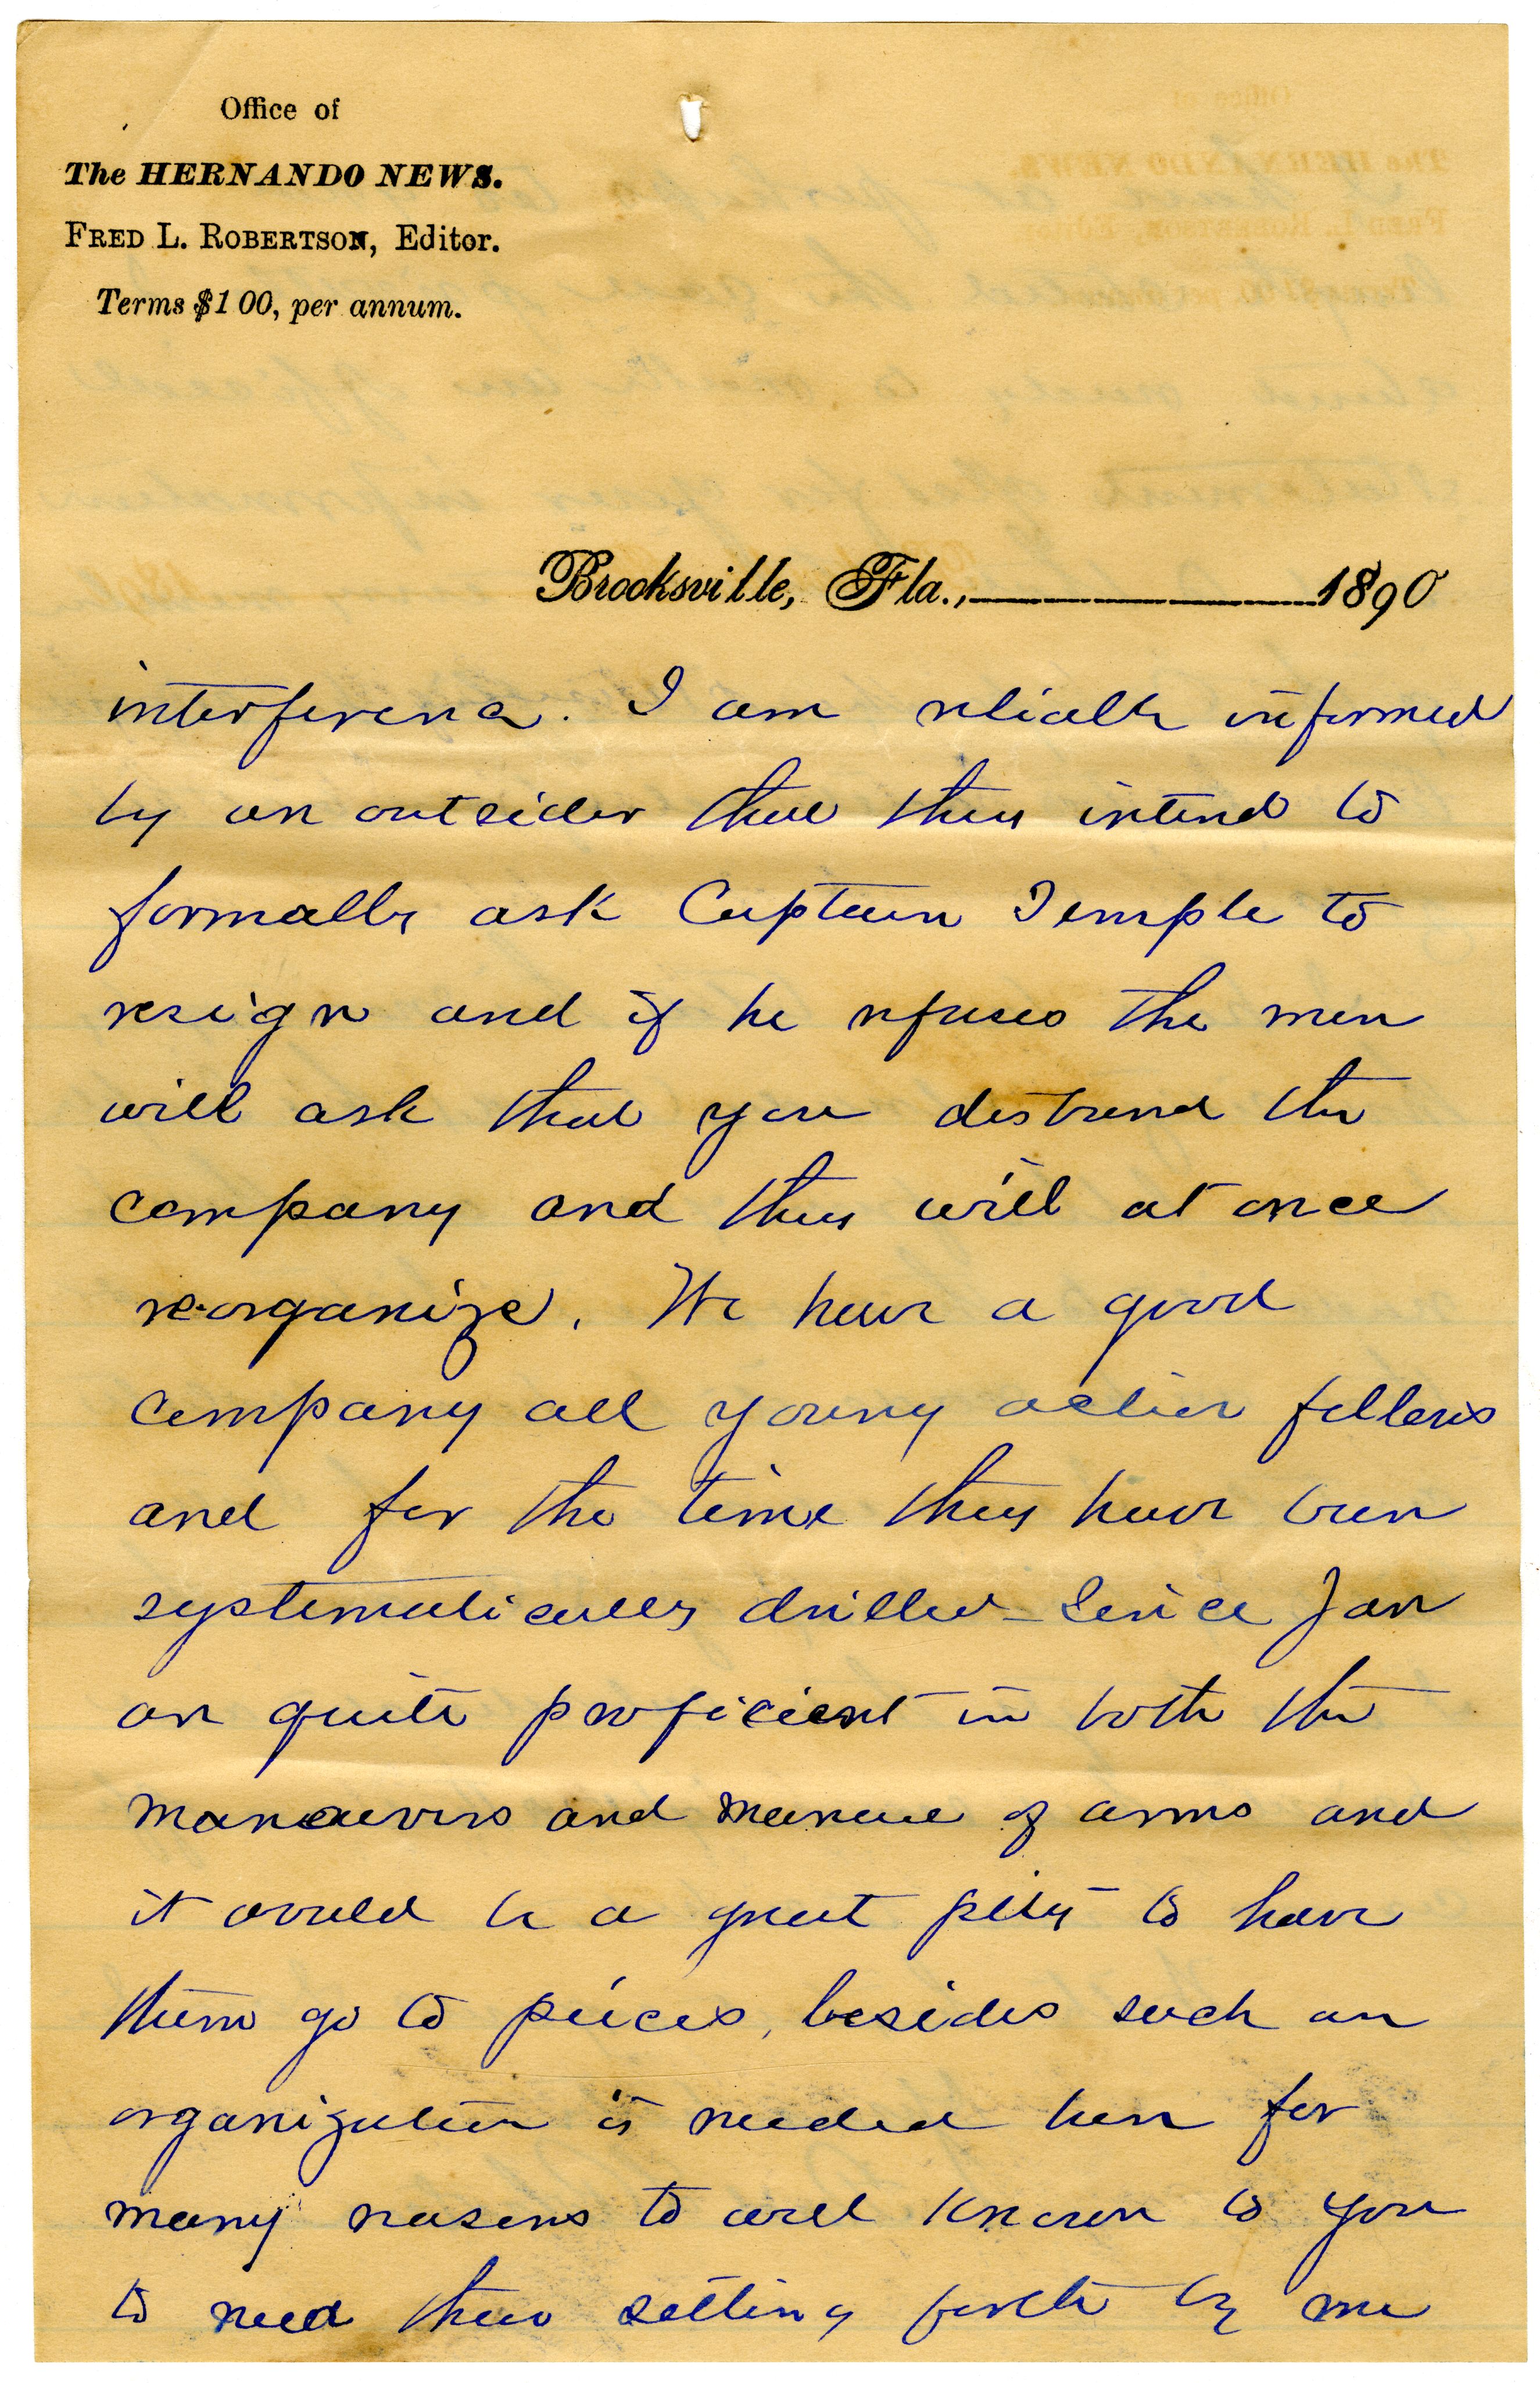 Office of
The HERNANDO NEWS.
FRED L. ROBERTSON, Editor.
Terms $1 00, per annum.
Brooksville, Fla., 1890
interference. I am reliably informed
by an outsider that they intend to
formally ask Captain Temple to
resign and if he refuses the men
will ask that you disband the
company and they will at once
re-organize. We have a good
company all young active fellows
and for the time they have been
systematically drilled - Since Jan
are quite proficient in both the
manoeuvers and manuel of arms and
it would be a great pity to have
them go to pieces, besides such an
organization is needed here for
many reasons to well known to you
to need their setting forth by me